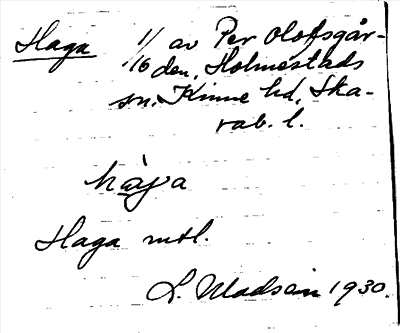 Haga 1/16 av Per Olofsgår-
den, Holmestads
sn. Kinne hd, Ska-
rab. l.
hàga
Haga mtl.
L. Madsén 1930.